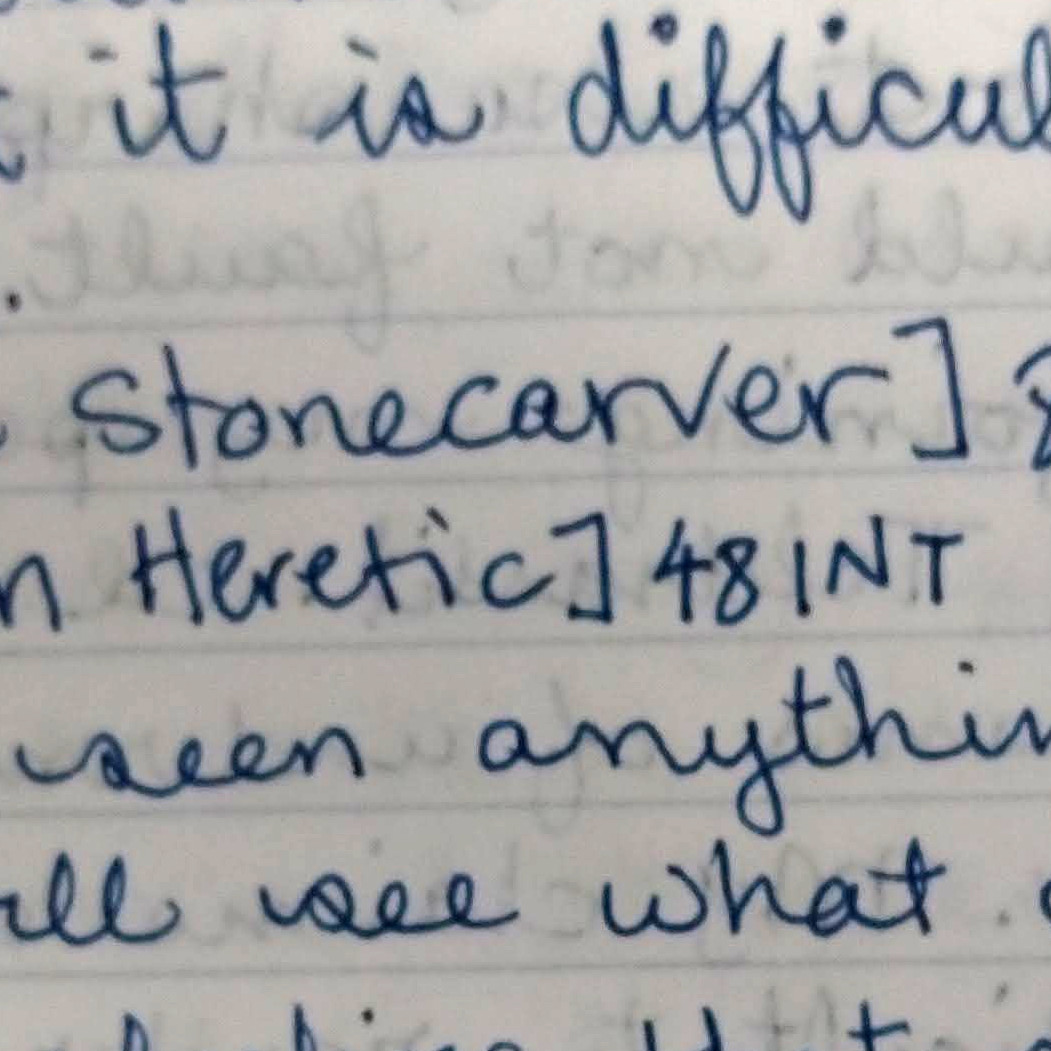 it is difficul
Stonecarver] &
n Heretic] 48 INT
seen anythin
all see what